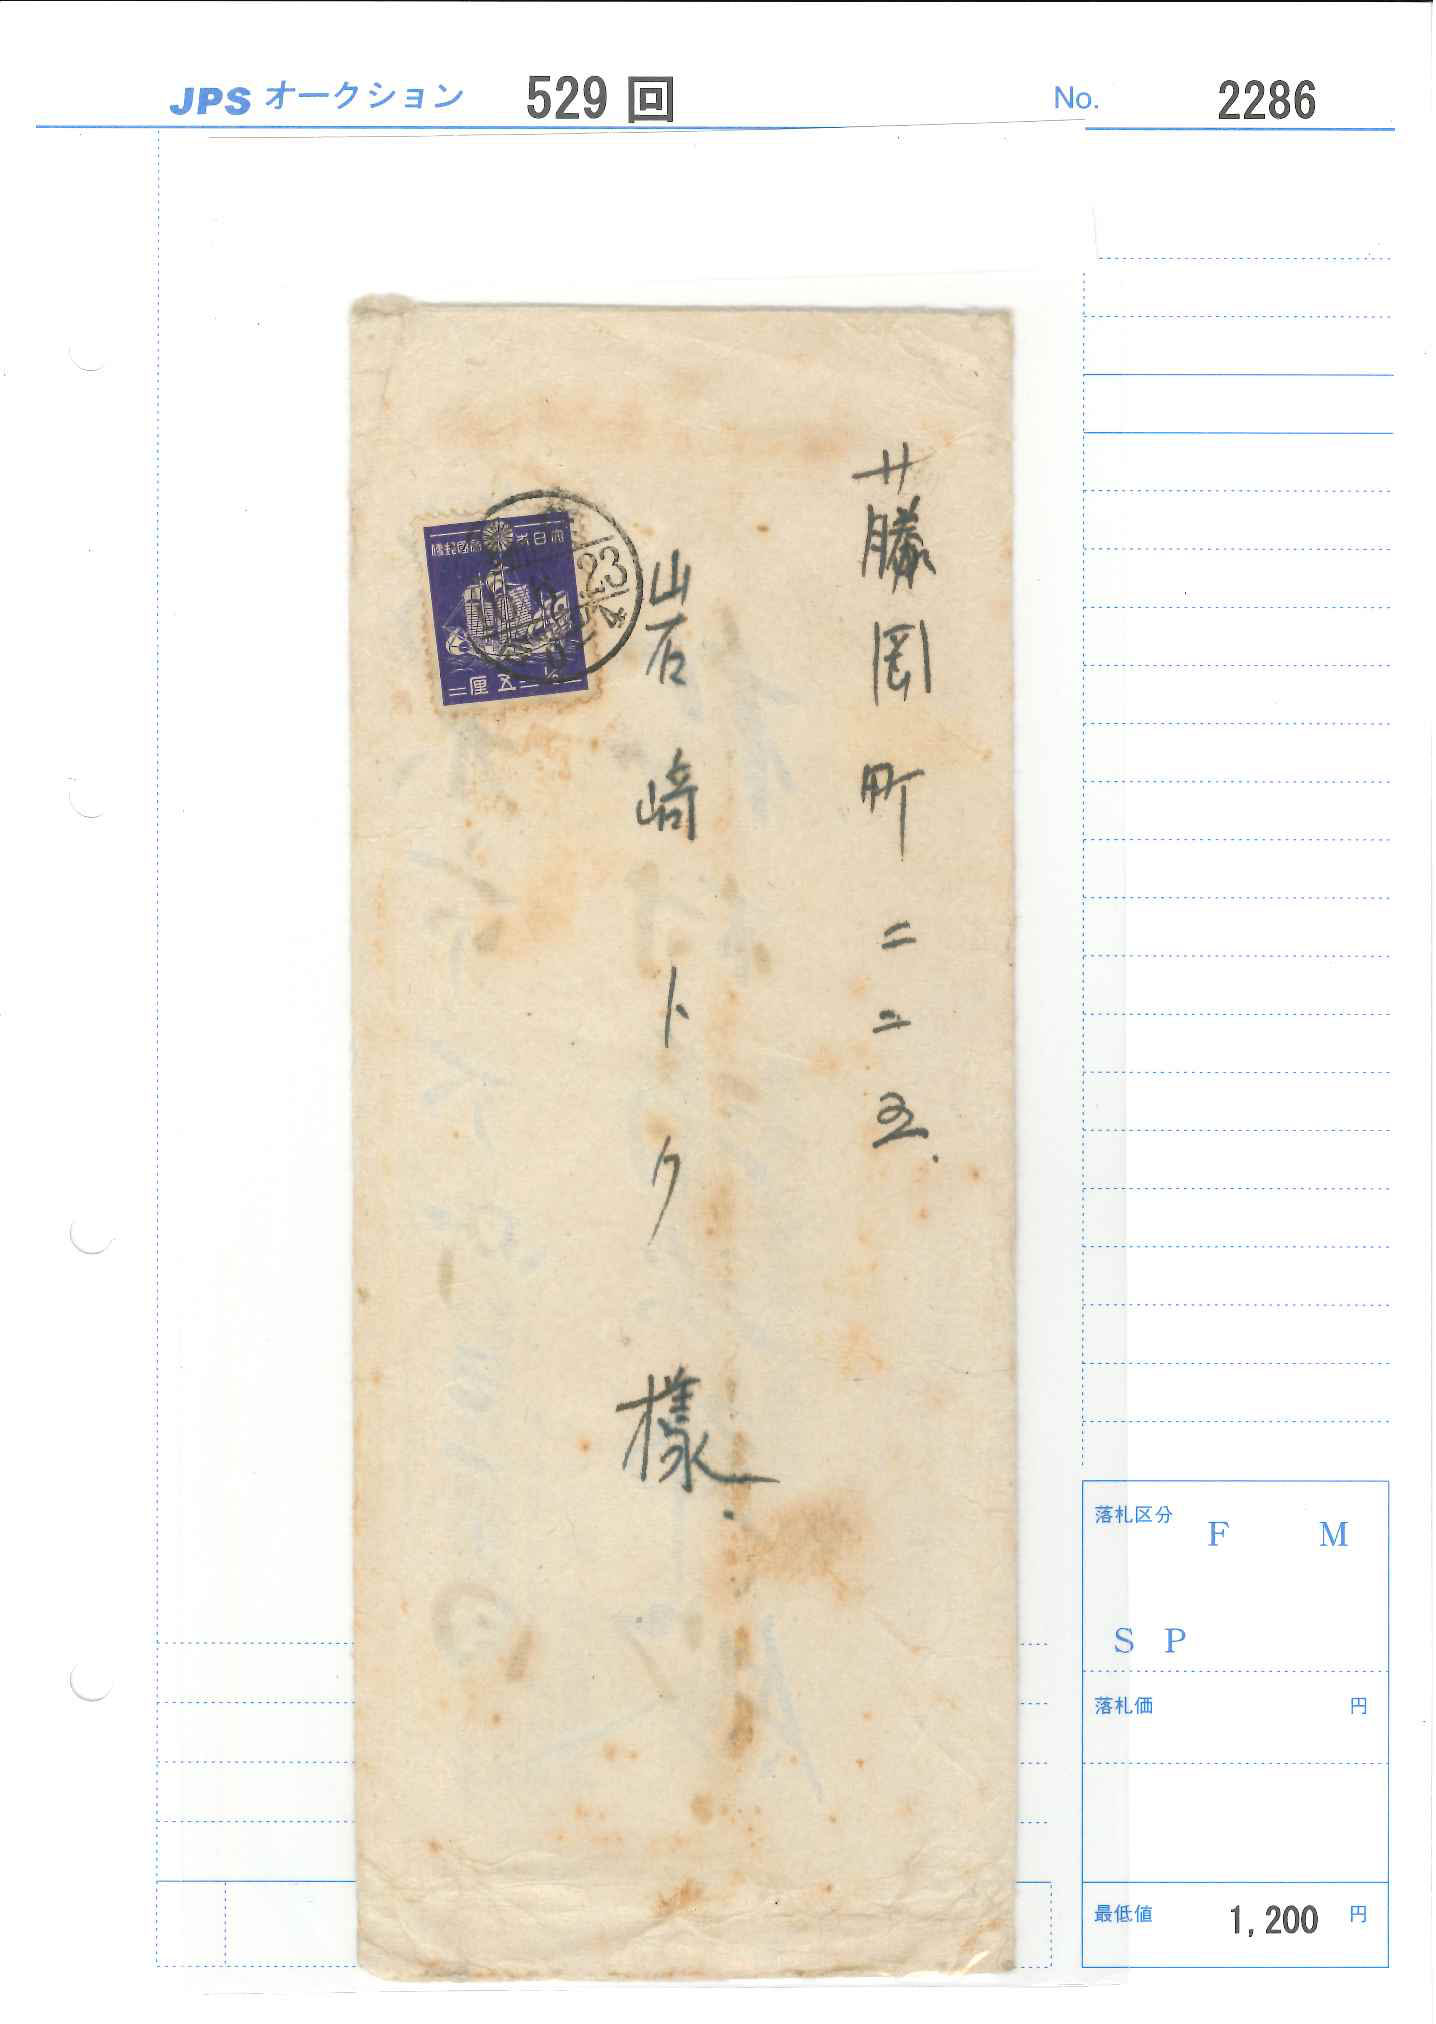 JPS オークション 529 回 No. 2286
藤岡町二二五.
岩﨑トク様.
大日本帝國郵便
1/2 五厘
23
4
落札区分
F M
S P
落札価 円
最低値 1,200 円